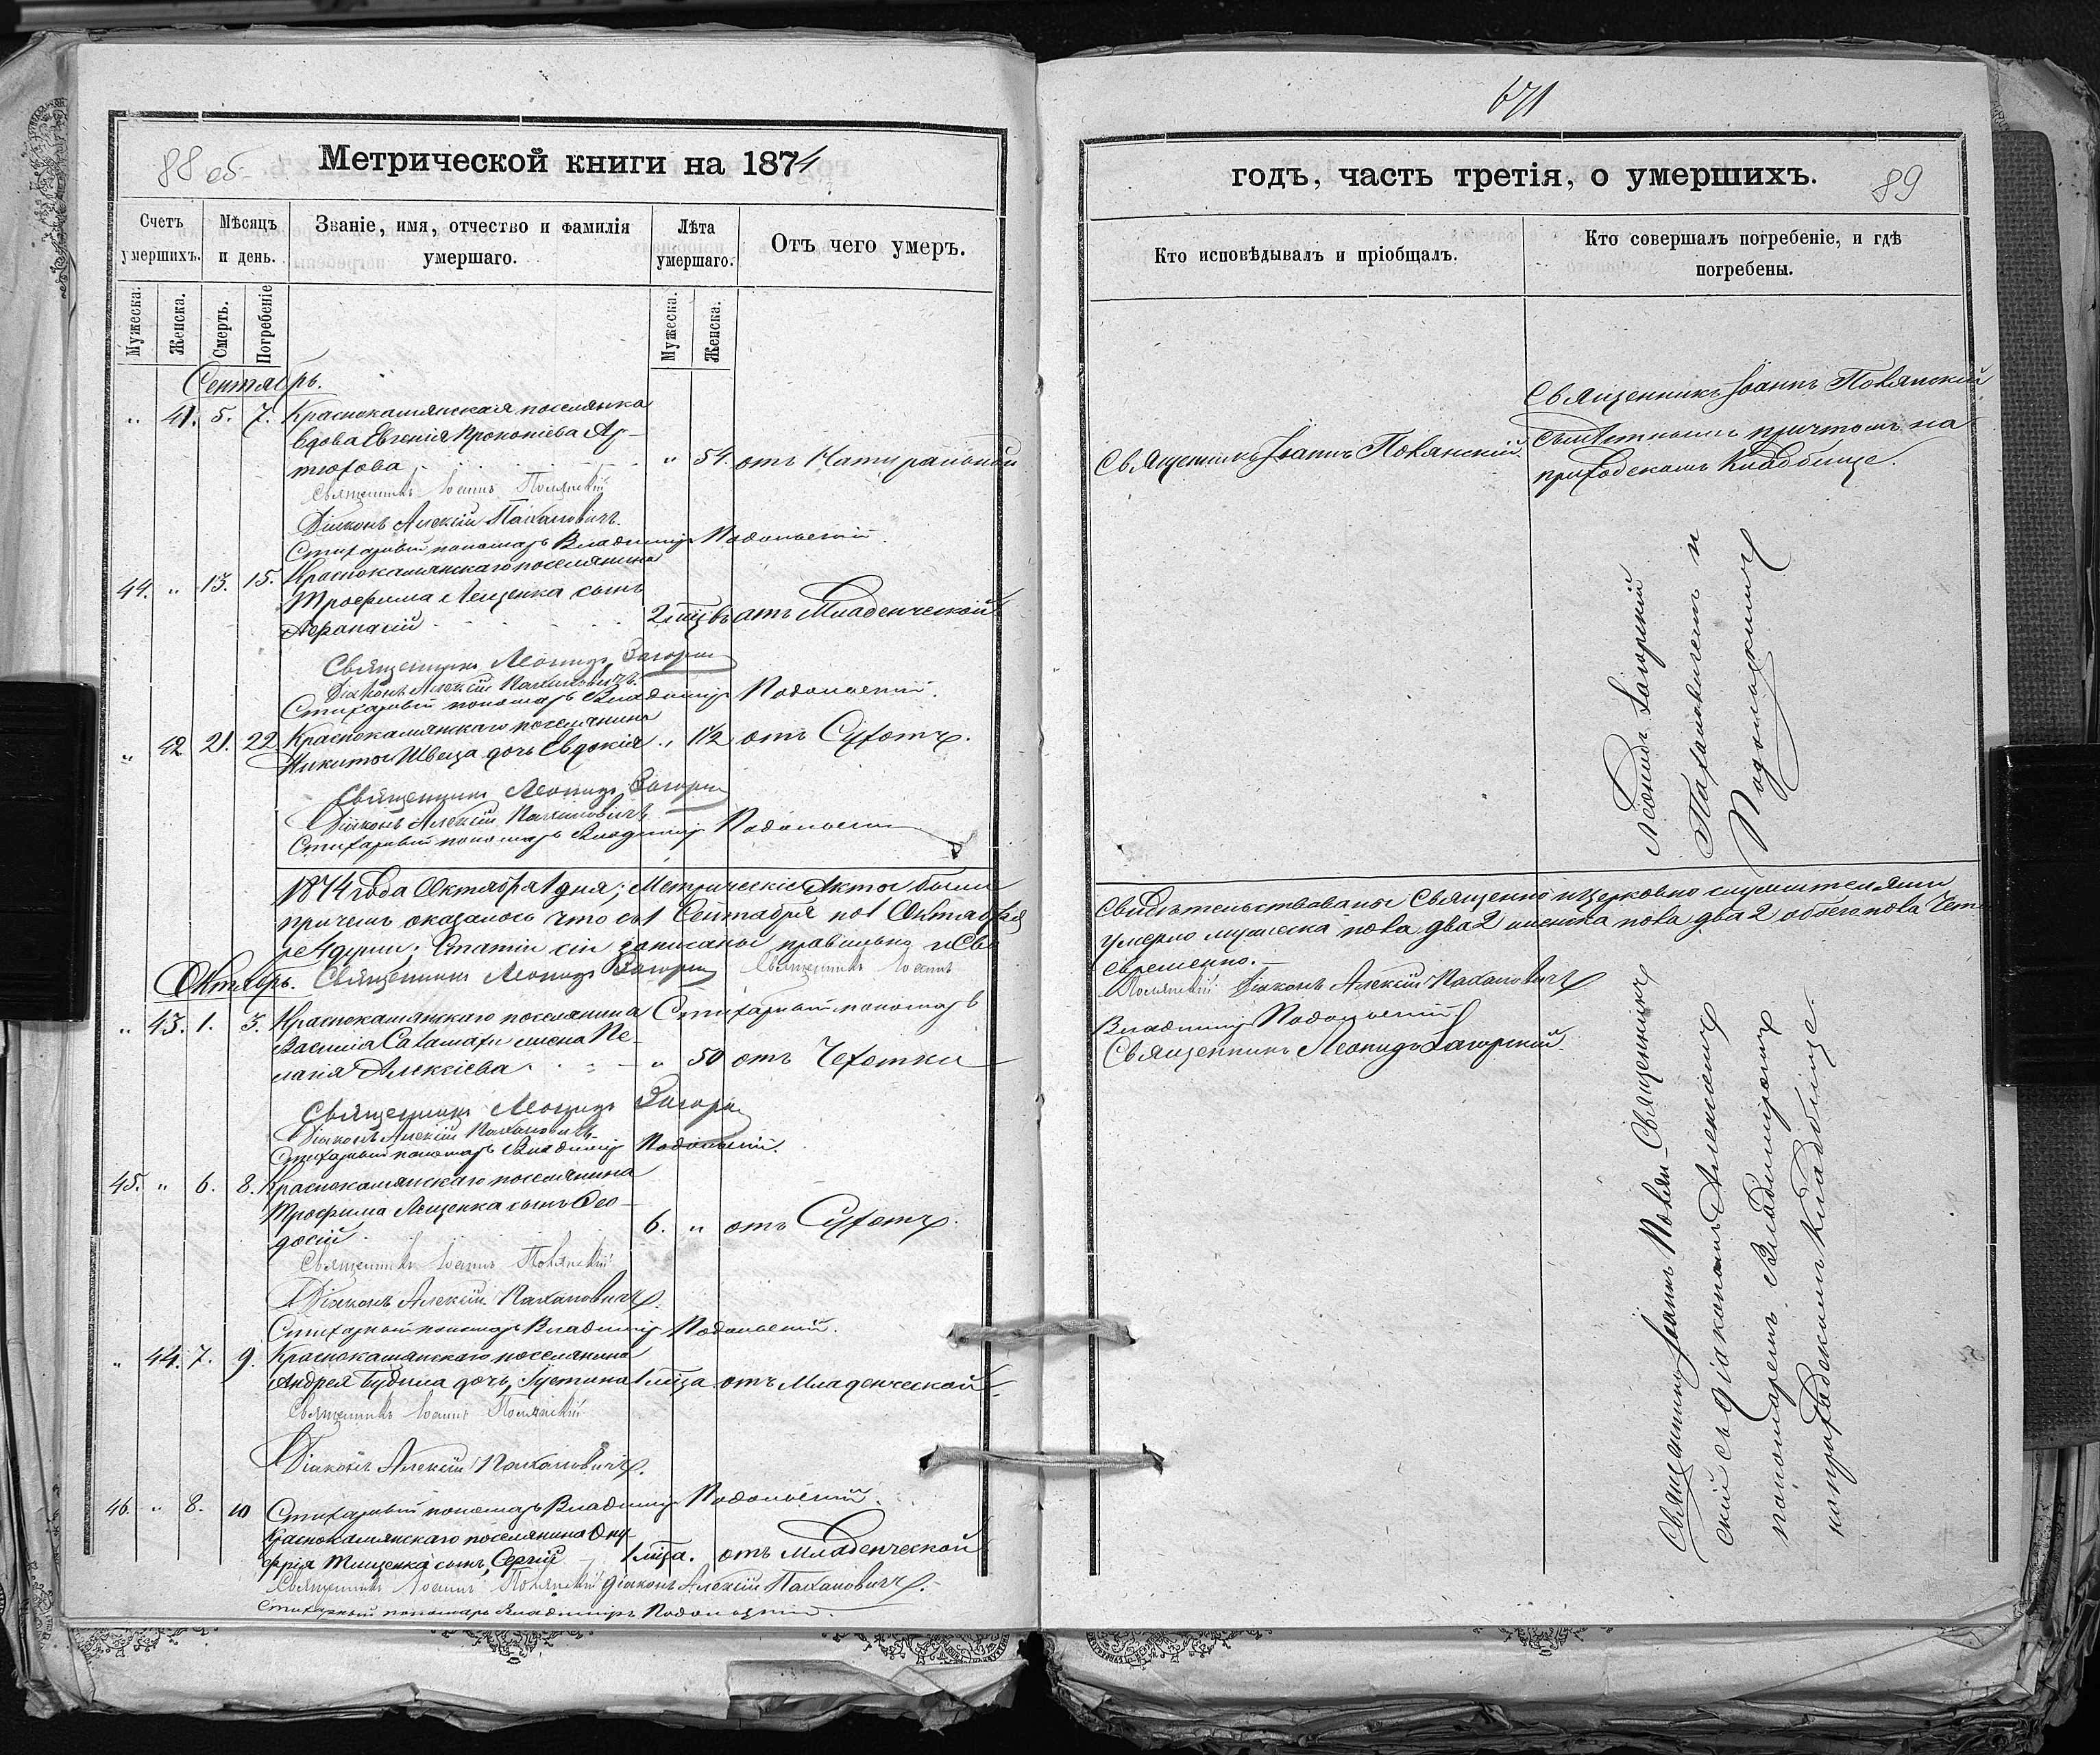 88 об
Метрической книги на 1874
Счетъ умершихъ.
Мѣсяцъ и день.
Званіе, имя, отчество и фамилія умершаго.
Лѣта умершаго.
Отъ чего умеръ.
Мужеска.
Женска.
Смерть.
Погребеніе
Мужеска.
Женска.
Сентябрь.
" 41. 5. 7. Краснокамянская поселянка
вдова Евгенія Прокопіева Ар-
тюхова " 54. отъ Натуральной
Священникъ Іоаннъ Полянскій
Діаконъ Алексій Паханович.
Стихарный пономарь Владиміръ Подольскій.
44. " 13. 15. Краснокамянскаго поселянина
Трофима Лещенка сынъ
Афанасій 2 мцвъ отъ Младенческой
Священникъ Леонидъ Загорскій
Діаконъ Алексій Пахановичъ.
Стихарный пономарь Владиміръ Подольскій.
" 42 21. 22 Краснокамянскаго поселянина
Никиты Швеца дочь Евдокія " 1½ отъ Сухотъ.
Священникъ Леонидъ Загорскій
Діаконъ Алексій Пахановичъ
Стихарный пономарь Владиміръ Подольскій
1874 года Октября 1 дня; Метрическіе Акты были
причемъ оказалось что съ 1 Сентября по 1 Октября
ре 4 души; Статіи сіи записаны правильно и Сво
Октябрь. Священникъ Леонидъ Загорскій Священникъ Іоаннъ
" 43. 1. 3. Краснокамянскаго поселянина Стихарный пономарь
Василія Саламахи жена Пе-
лагія Алексіева " 50 отъ Чехотки
Священникъ Леонидъ Загорскій
Діаконъ Алексій Пахановичъ
Стихарный пономарь Владиміръ Подольскій.
45. " 6. 8. Краснокамянскаго поселянина
Трофима Лещенка сынъ Ѳео-
досій 6. " отъ Сухотъ.
Священникъ Іоаннъ Полянскій
Діаконъ Алексій Пахановичъ.
Стихарный пономарь Владиміръ Подольскій.
" 44. 7. 9. Краснокамянскаго поселянина
Андрея Будила дочь, Іустина 1 мца. отъ Младенческой
Священникъ Іоаннъ Полянскій
Діаконъ Алексій Пахановичъ.
46. " 8. 10 Стихарный пономарь Владиміръ Подольскій.
Краснокамянскаго поселянина Ону-
фрія Тищенка сынъ, Сергій 1 мца. отъ Младенческой
Священникъ Іоаннъ Полянскій діаконъ Алексій Пахановичъ.
Стихарный пономарь Владиміръ Подольскій.
671
годъ, часть третія, о умершихъ.
89
Кто исповѣдывалъ и пріобщалъ.
Кто совершалъ погребеніе, и гдѣ погребены.
Священникъ Іоаннъ Полянскій.
Священникъ Іоаннъ Полянскій
съ мѣстнымъ причтомъ на
приходскомъ Кладбище.
Леонидъ Загорскій
Пахановичемъ и
Подольскимъ
Свидѣтельствованы Священно и Церковно служителями
умерло мужеска пола два 2 женска пола два 2 обоего пола Четы
евременно.
Полянскій Діаконъ Алексій Пахановичъ
Владиміръ Подольскій
Священникъ Леонидъ Загорскій.
Священники Іоаннъ Полян- Священникъ
скій съ діакономъ Алексіемъ
пономаремъ Владиміромъ
на приходскомъ Кладбищѣ.